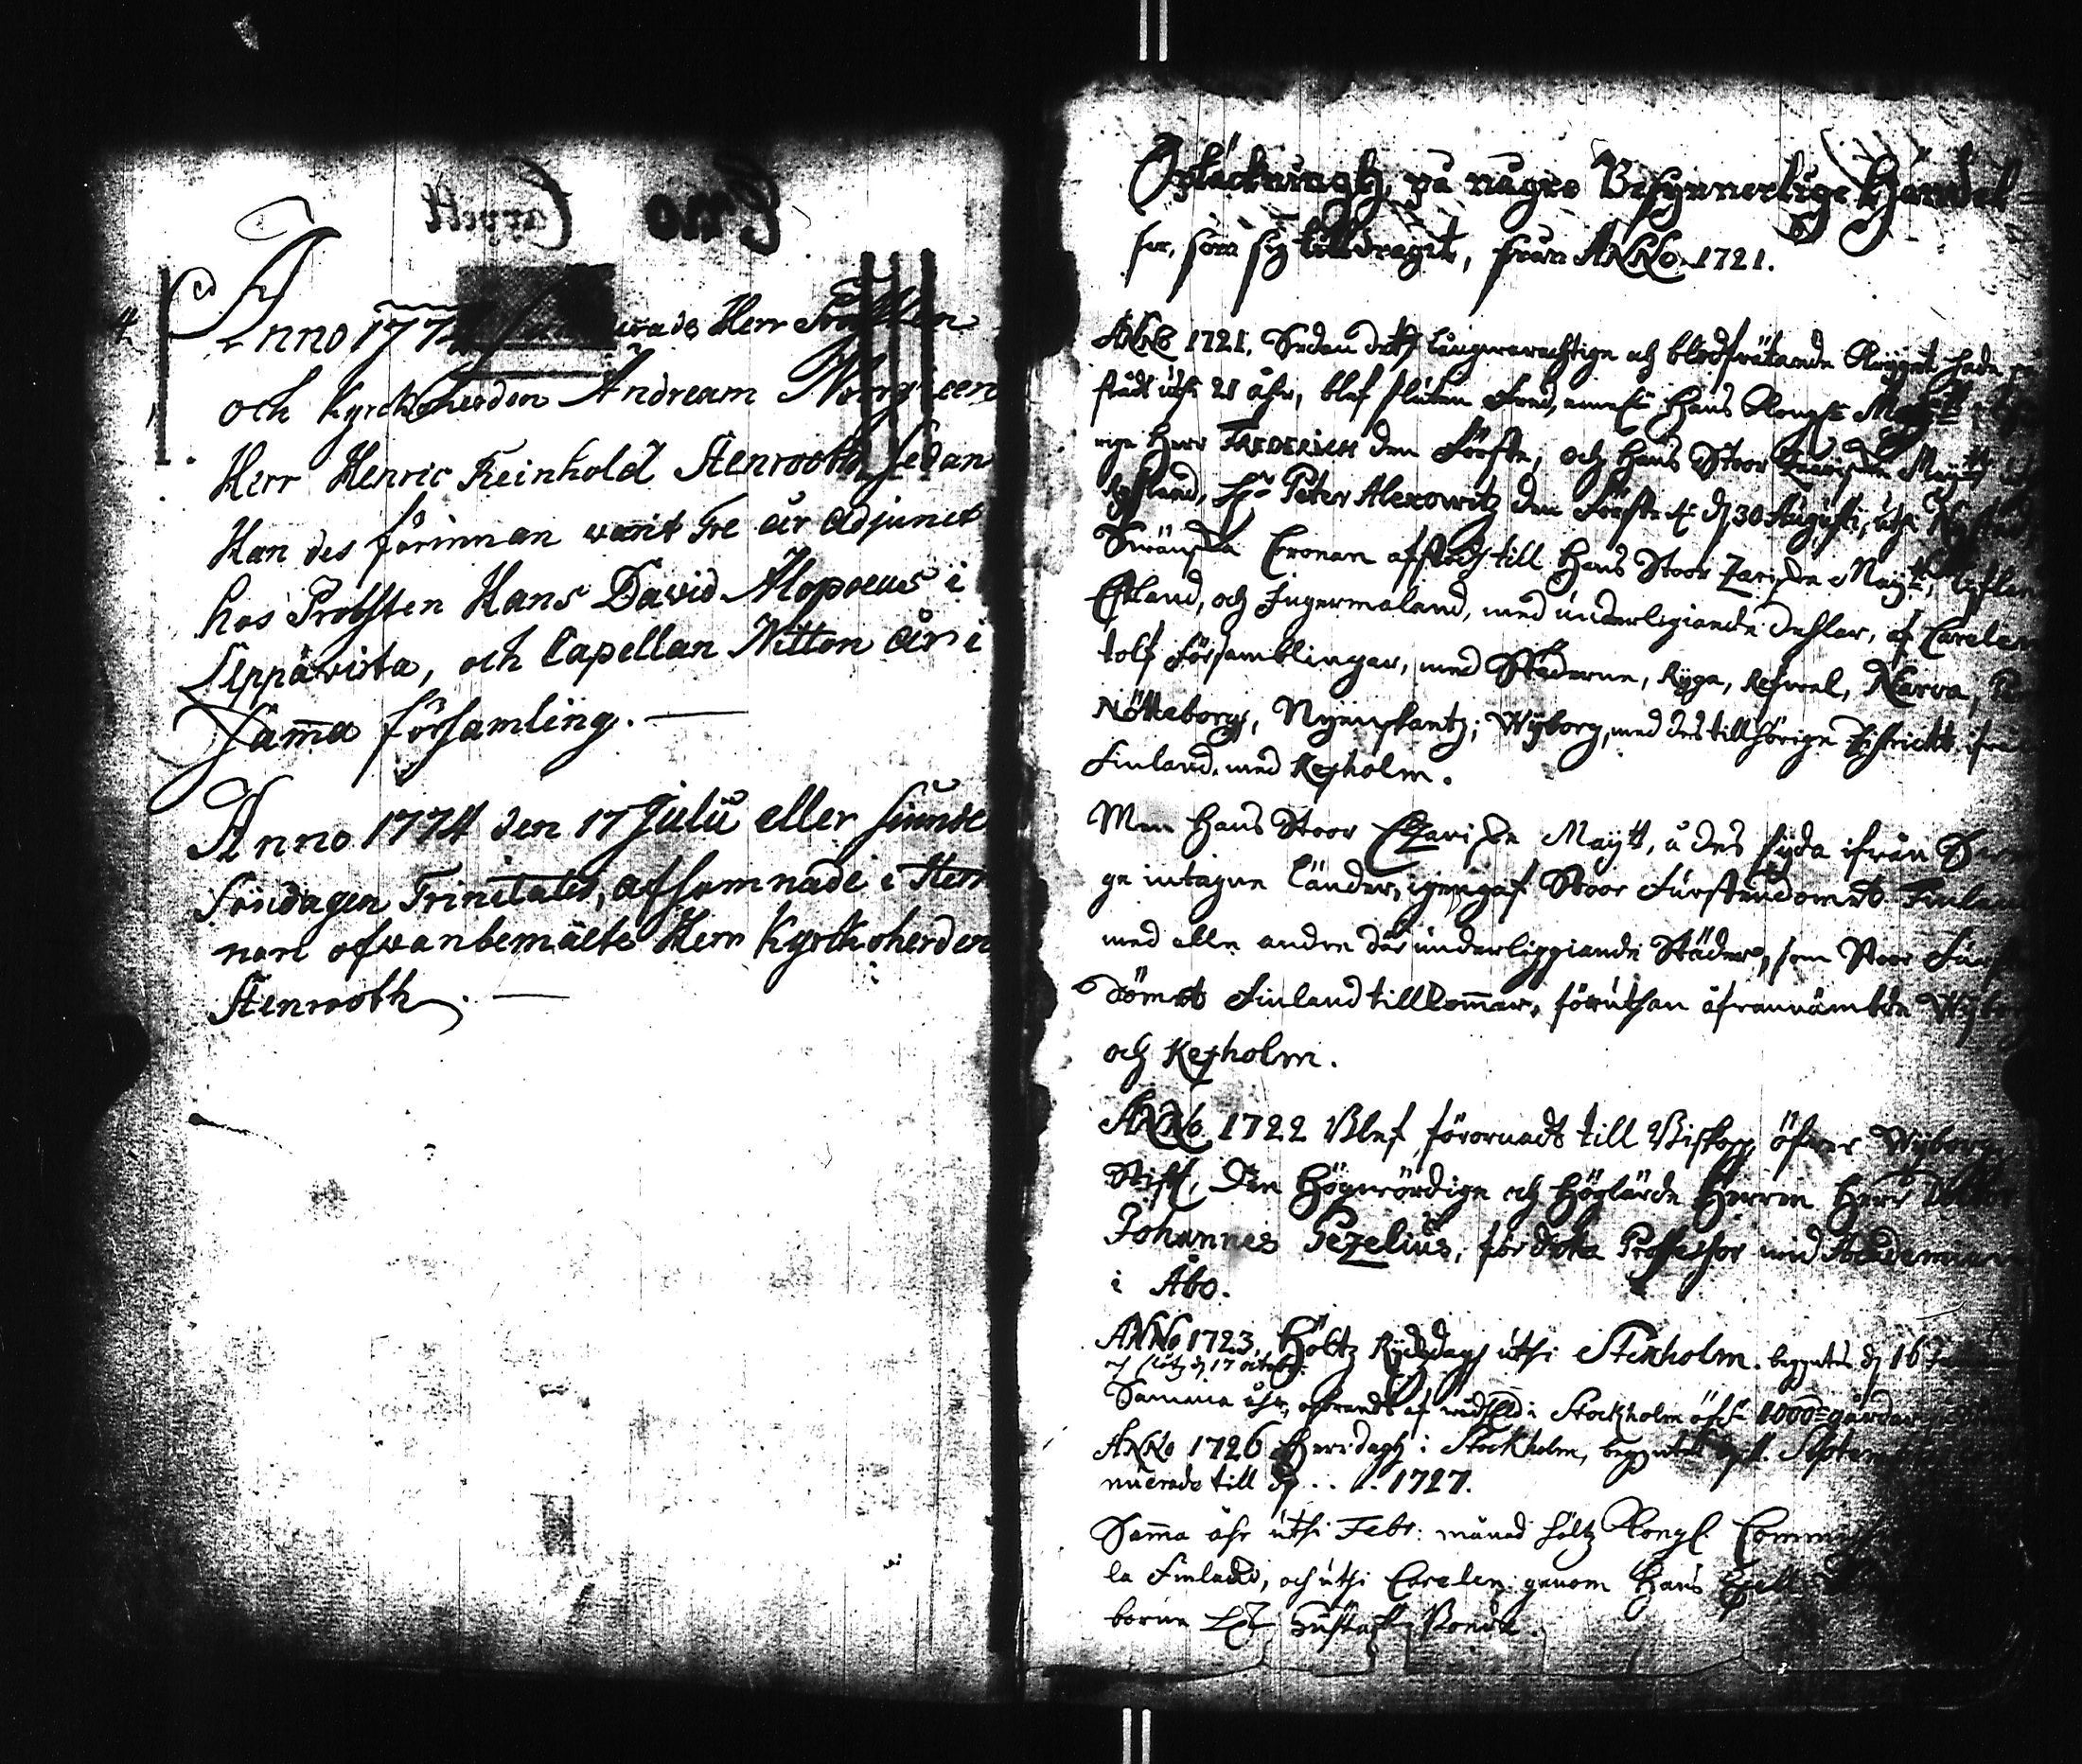 Anno 1774 Herr
och Kyrckoherden Andream
Herr Henric Reinhold Stenrooth, sedan
Han des förinnan warit Tre år adjunct
hos Probsten Hans David Alopoeus i
Leppävirta, och Capellan Nitton år i
Sam̄a församling. —
Anno 1774 den 17 Julii eller siunde
Söndagen Trinitatis, afsomnade i Herra
nom ofvanbemälte Herr Kyrckoherden
Stenrooth. —
på någre Besynnerlige Händel-
ser, som sig tilldragit, från ANNO 1721.
ANNO 1721. Sedan dett långwarachtige och blodfrätande Kryget hade
ståt uthi 21 åhr, blef sluten Fred, emellan Hans Kongl. Maytt
rige Herr FREDERICH den Förste, och Hans Stoor Zariska Maytt
Ryssland, Hr Peter Alexowitz den Förste d. 30 Augusti, uthi Nystad
Swänska Cronan afstod till Hans Stoor Zariska Maytt, Lyfland
Estland, och Ingermaland, med underligiande dehlar, af Carelen
tolf Församblingar, med Städerne, Ryga, Refwel, Narva,
Nötteborg, Nyenskantz, Wyborg, med des tillhörige District ifrån
Finland, med Kexholm.
Men Hans Stoor Czariska Maytt, å des syda ifrån Swerri
ge intagne länder, igengaf Stoor Furstendömet Finland
med alle andre där underliggiande Städer, som Stoor Furst
dömet Finland tillkom̄er, föruthan åfvannämbde Wyborg
och Kexholm.
ANNO 1722 Blef förordnadt till Biskop öfwer Wyborg
Stift, Den Högwördige och Höglärde Herren Herr Doctor
Johannes Gezelius, för detta Professor wid Academien
i Åbo.
ANNO 1723. Höltz Rydzdag uthi Stockholm. begyntes d. 16
och slöts d. 17 octobr.
Samma åhr, i Stockholm öfr 1000 gårdar
ANNO 1726 Herredag i Stockholm, begyntes Septemb
nuerade till d. . . . 1727.
Sam̄a åhr uthi Febr: månad höltz Kongl. Comm
la Finland, och uthi Carelen genom Hans
borne Hr Gustaf Bonde.